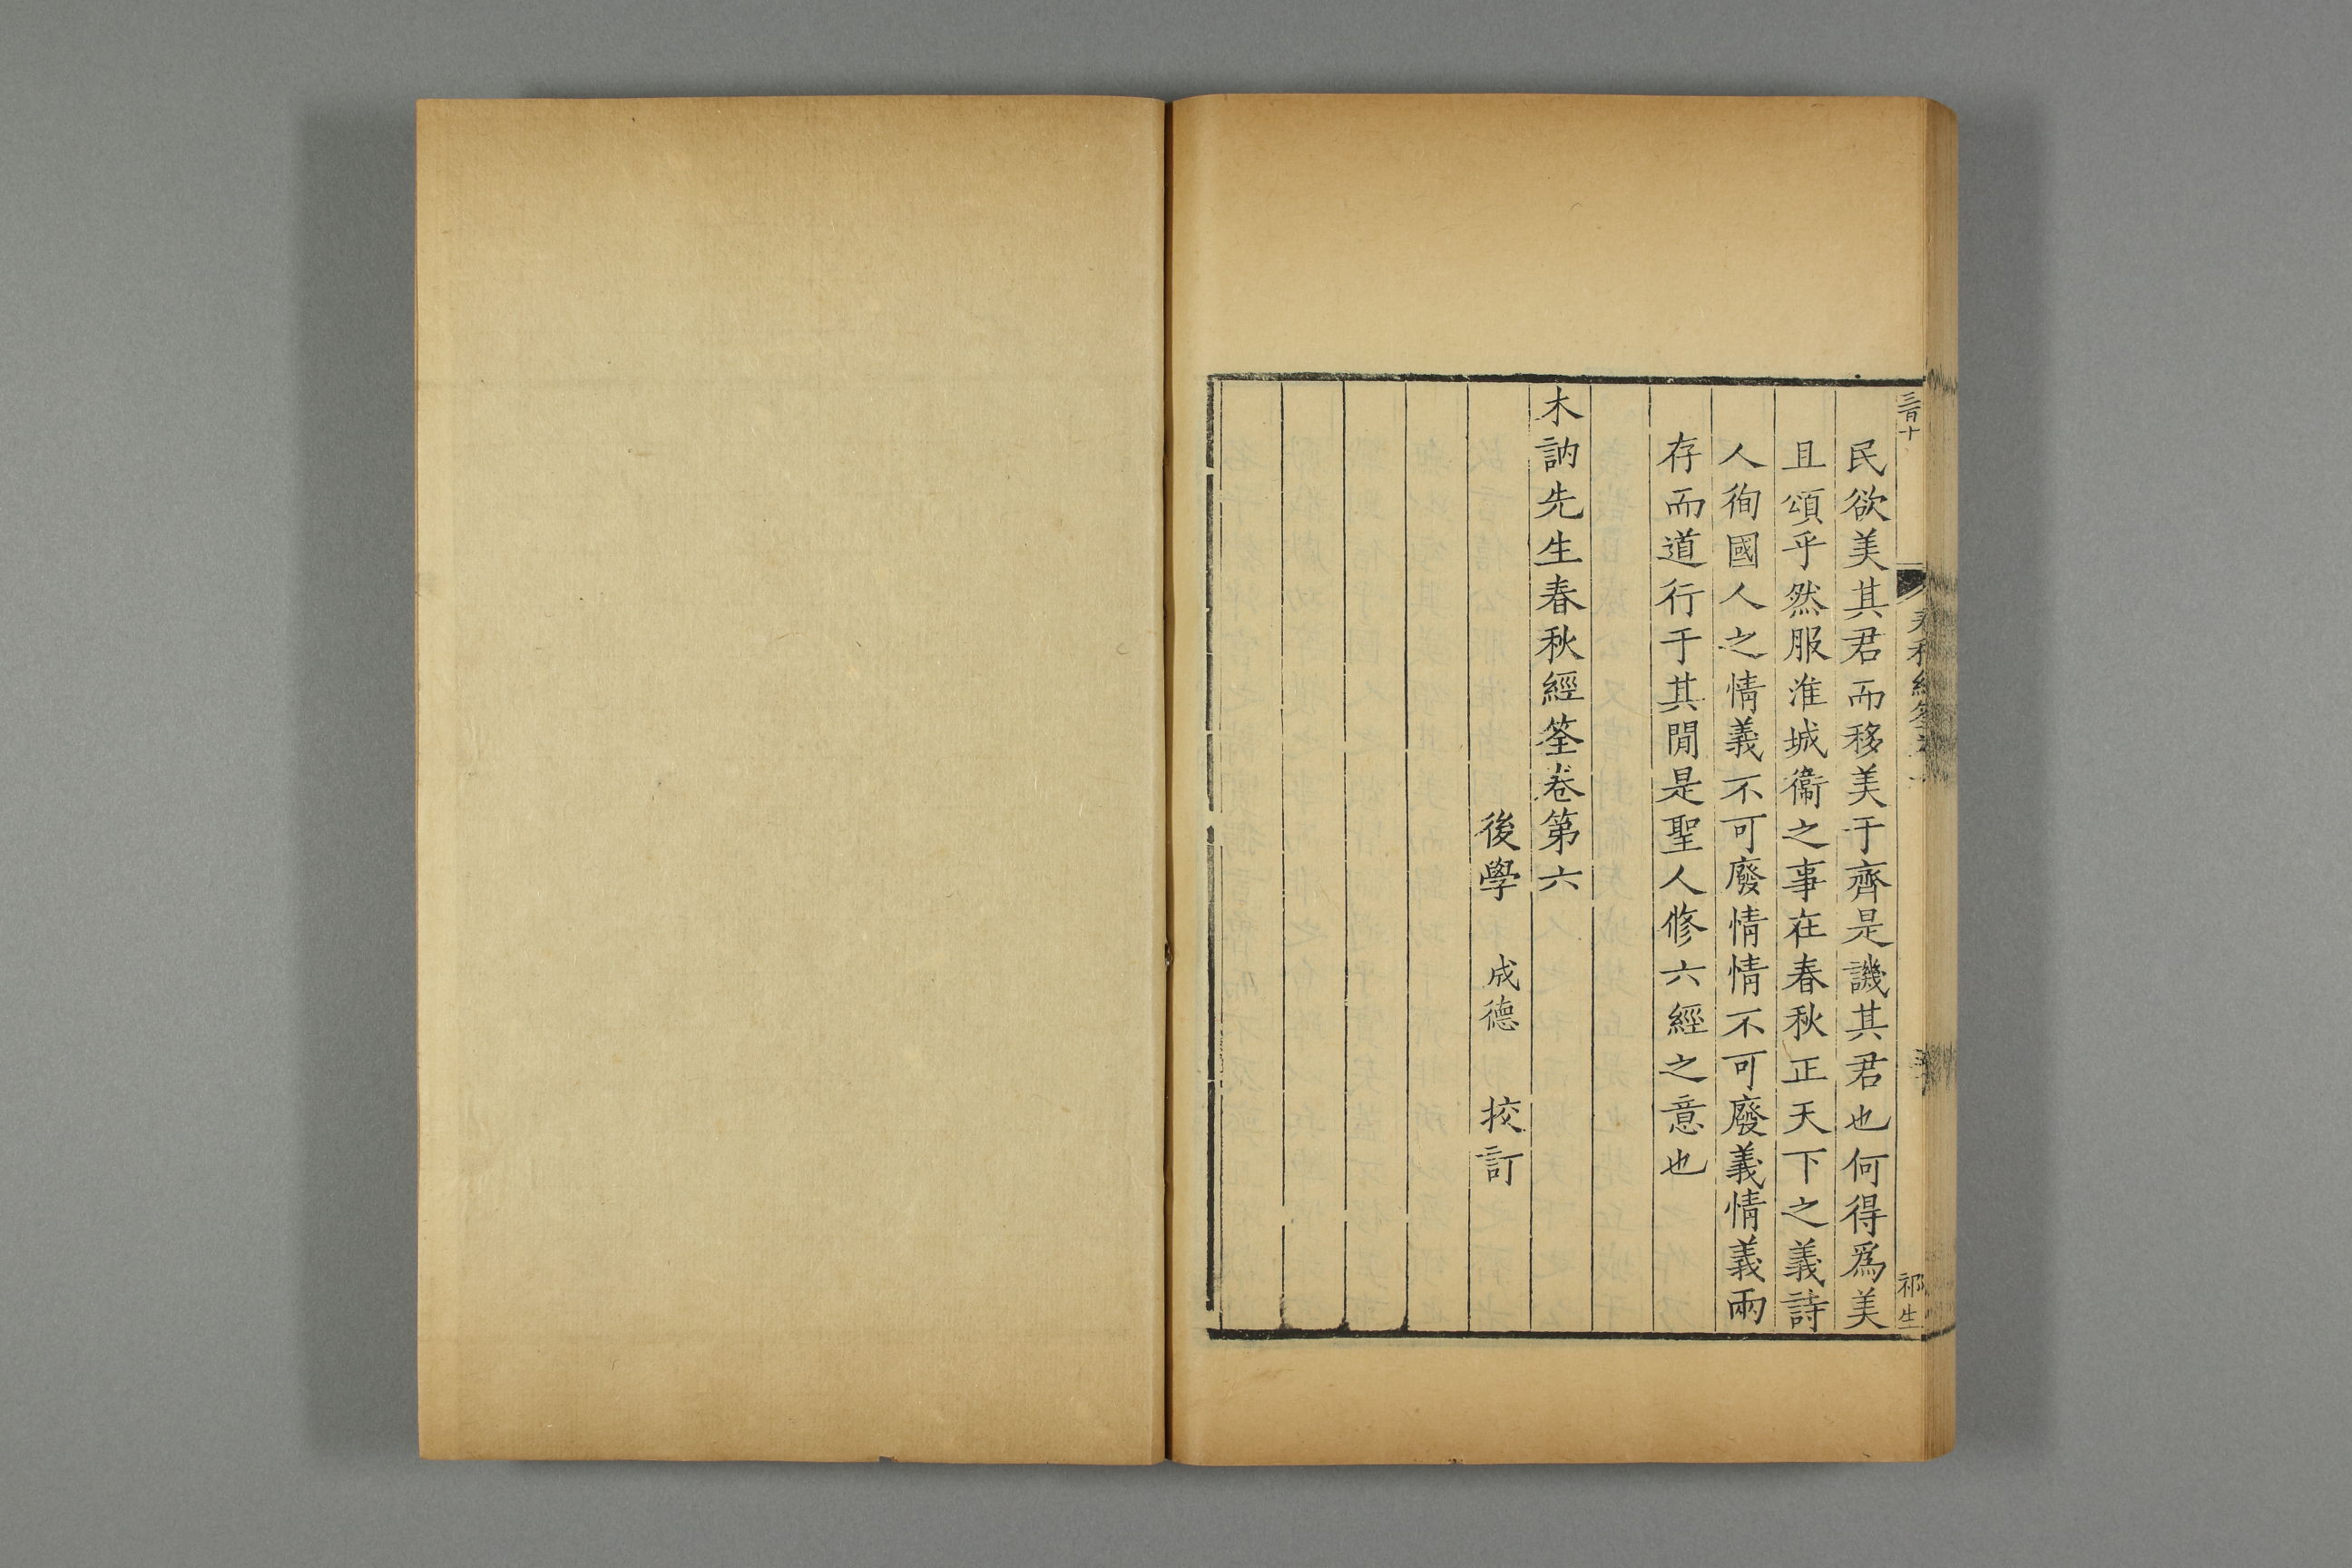 三百十
祁生
民欲美其君而移美于齊是譏其君也何得爲美
且頌乎然服淮城衞之事在春秋正天下之義詩
人徇國人之情義不可廢情情不可廢義情義兩
存而道行于其閒是聖人修六經之意也
木訥先生春秋經筌卷第六
後學 成德 挍訂